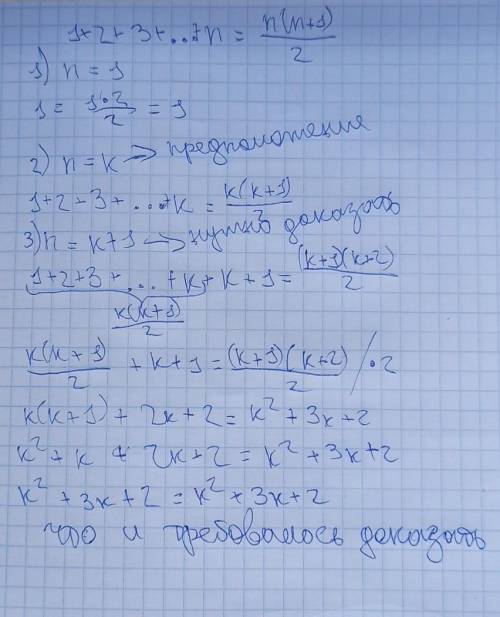 1+2+3+...+n = n(n+1)/2
1) n = 1
1 = 1·2/2 = 1
2) n = k → предположение
1+2+3+...+k = k(k+1)/2
3) n = k+1 → нужно доказать
1+2+3+...+k+k+1 = (k+1)(k+2)/2
k(k+1)/2
k(k+1)/2 + k+1 = (k+1)(k+2)/2 /·2
k(k+1) + 2k+2 = k² + 3k+2
k² + k + 2k+2 = k² + 3k+2
k² + 3k+2 = k² + 3k+2
что и требовалось доказать